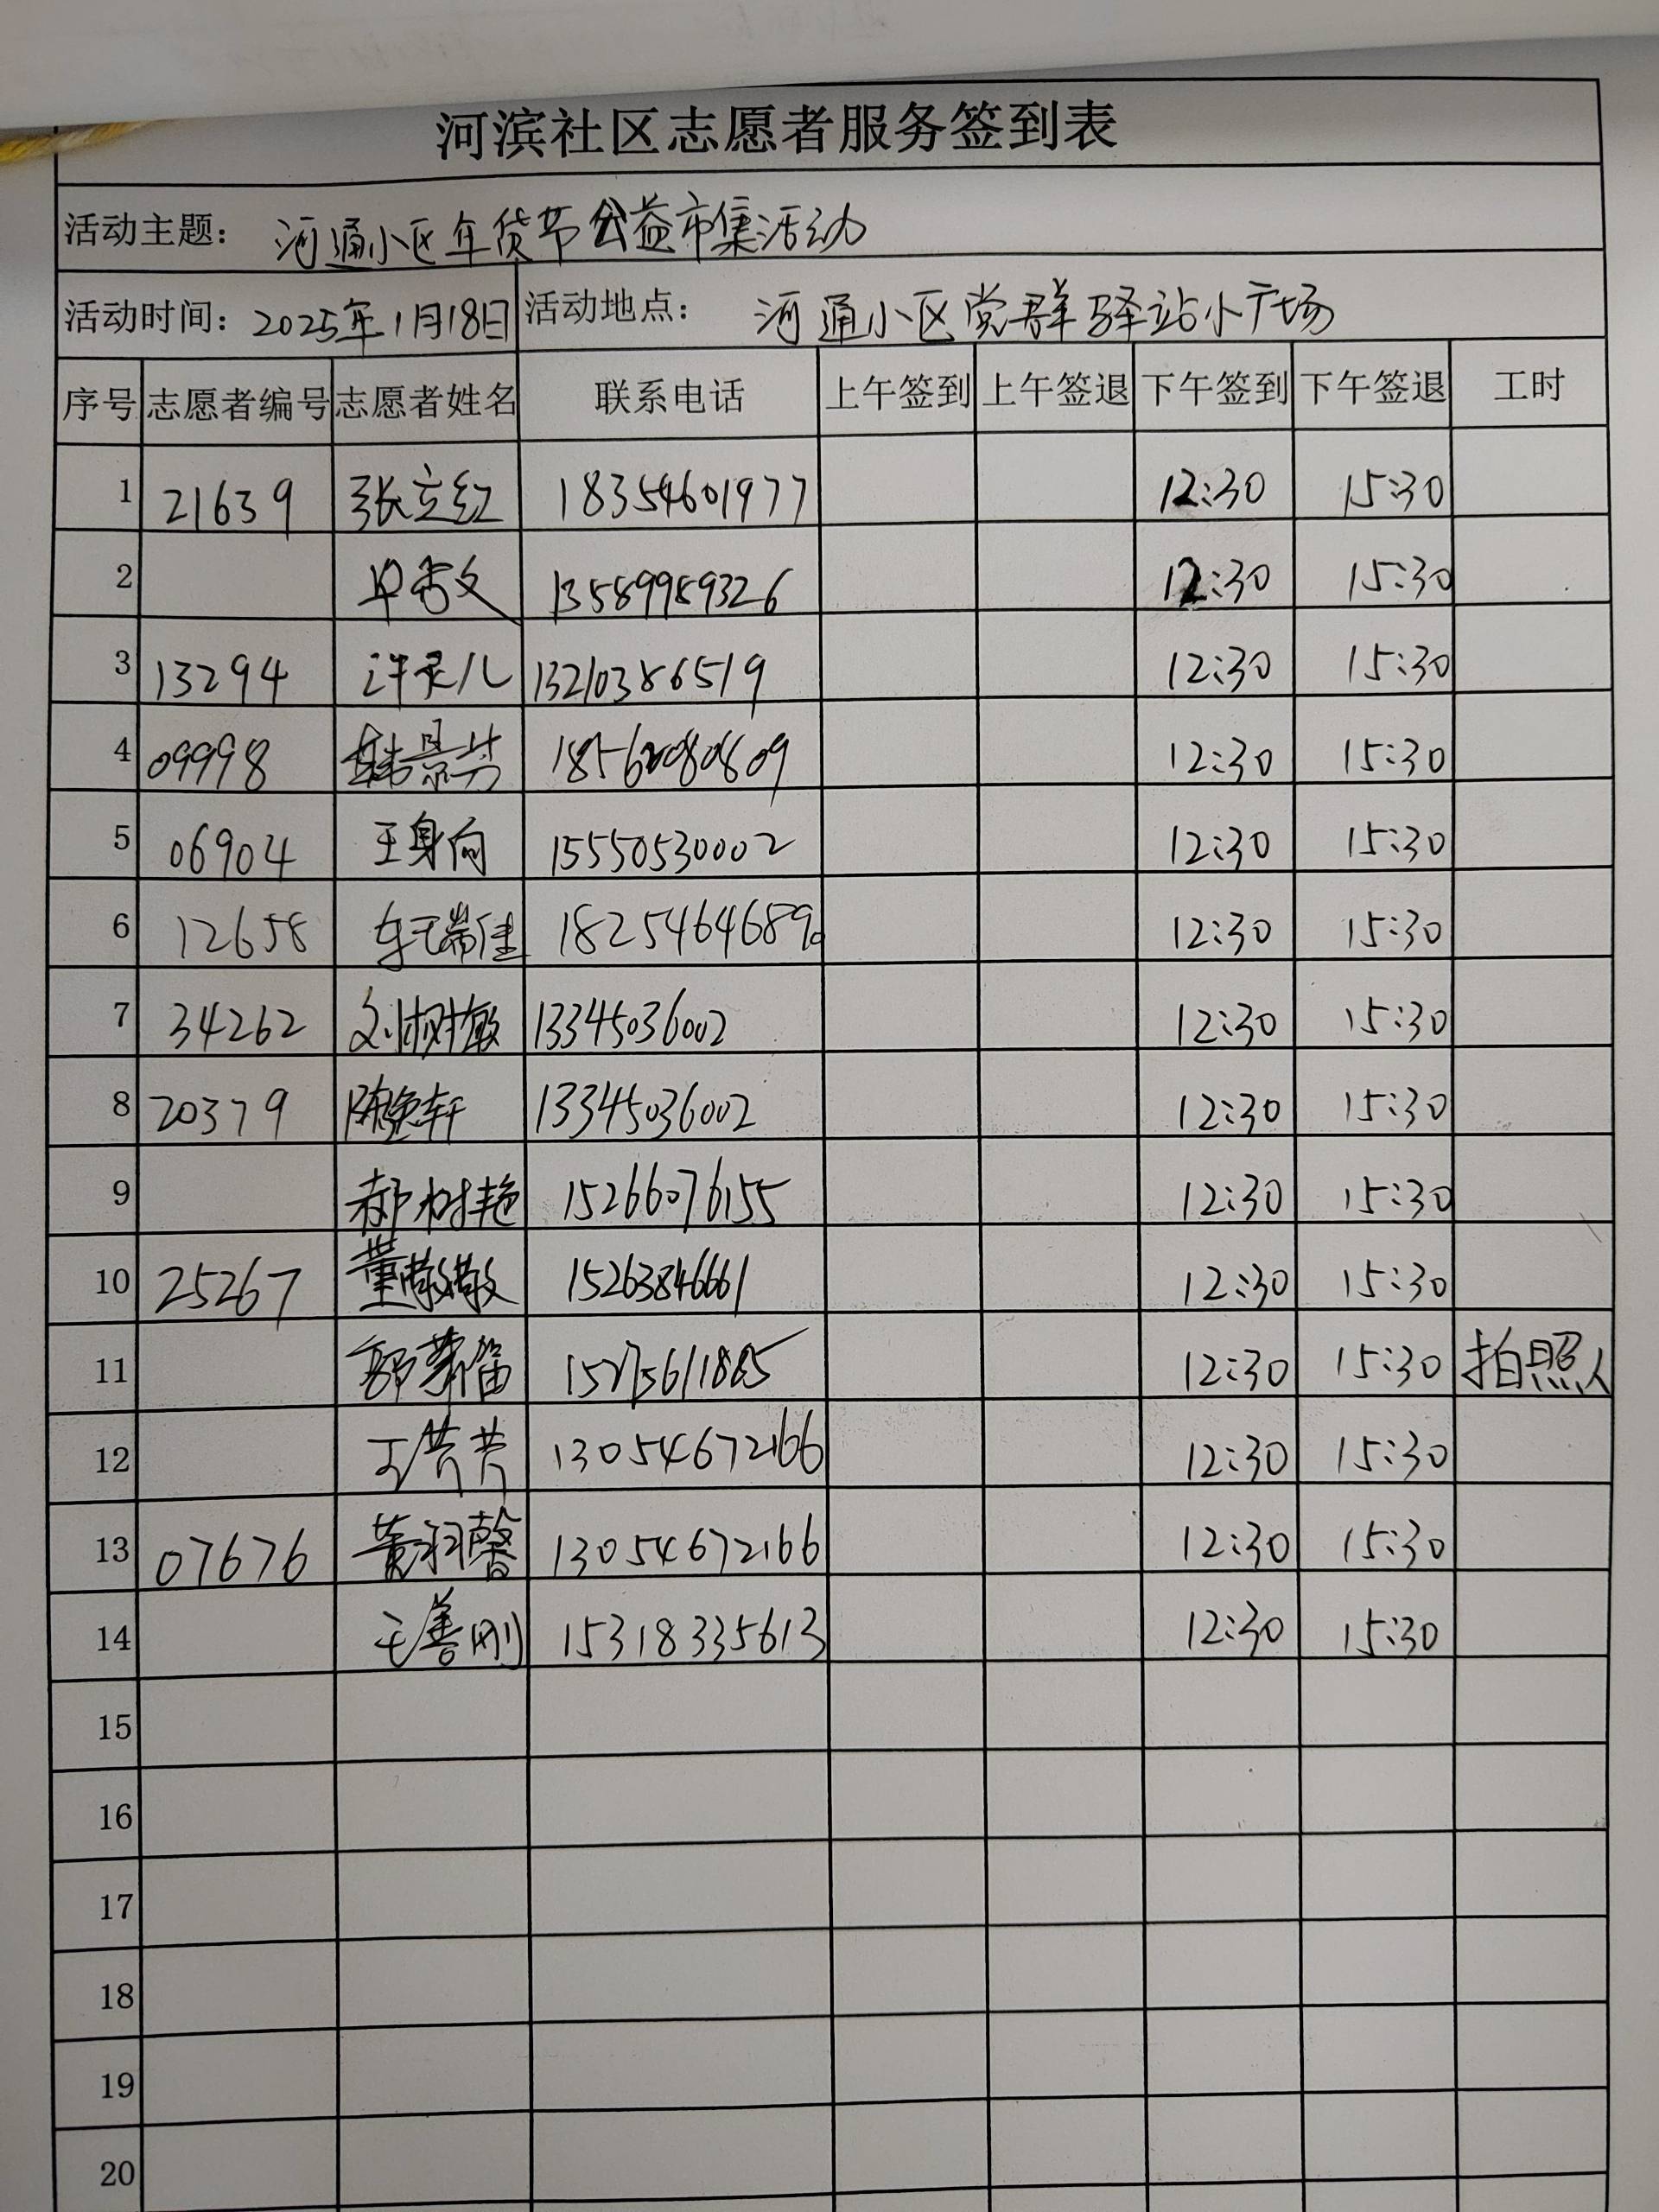 河滨社区志愿者服务签到表
活动主题： 河通小区年货节公益市集活动
活动时间：2025年1月18日 活动地点： 河通小区党群驿站小广场
序号 志愿者编号 志愿者姓名 联系电话 上午签到 上午签退 下午签到 下午签退 工时
1 21639 张立红 18354601977 12:30 15:30
2 13589989326 12:30 15:30
3 13294 许灵儿 13210386519 12:30 15:30
4 09998 韩景芳 12:30 15:30
5 06904 王身向 15550530002 12:30 15:30
6 12658 12:30 15:30
7 34262 刘树敏 13345036002 12:30 15:30
8 20379 13345036002 12:30 15:30
9 郝树艳 15266076155 12:30 15:30
10 25267 董墩墩 15263846661 12:30 15:30
11 12:30 15:30 拍照人
12 13054672166 12:30 15:30
13 07676 黄羽馨 13054672166 12:30 15:30
14 王善刚 15318335613 12:30 15:30
15
16
17
18
19
20